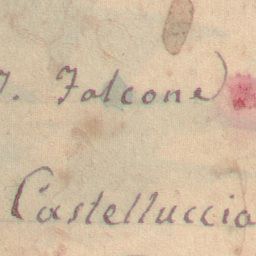 7. Falcone)
Castelluccio